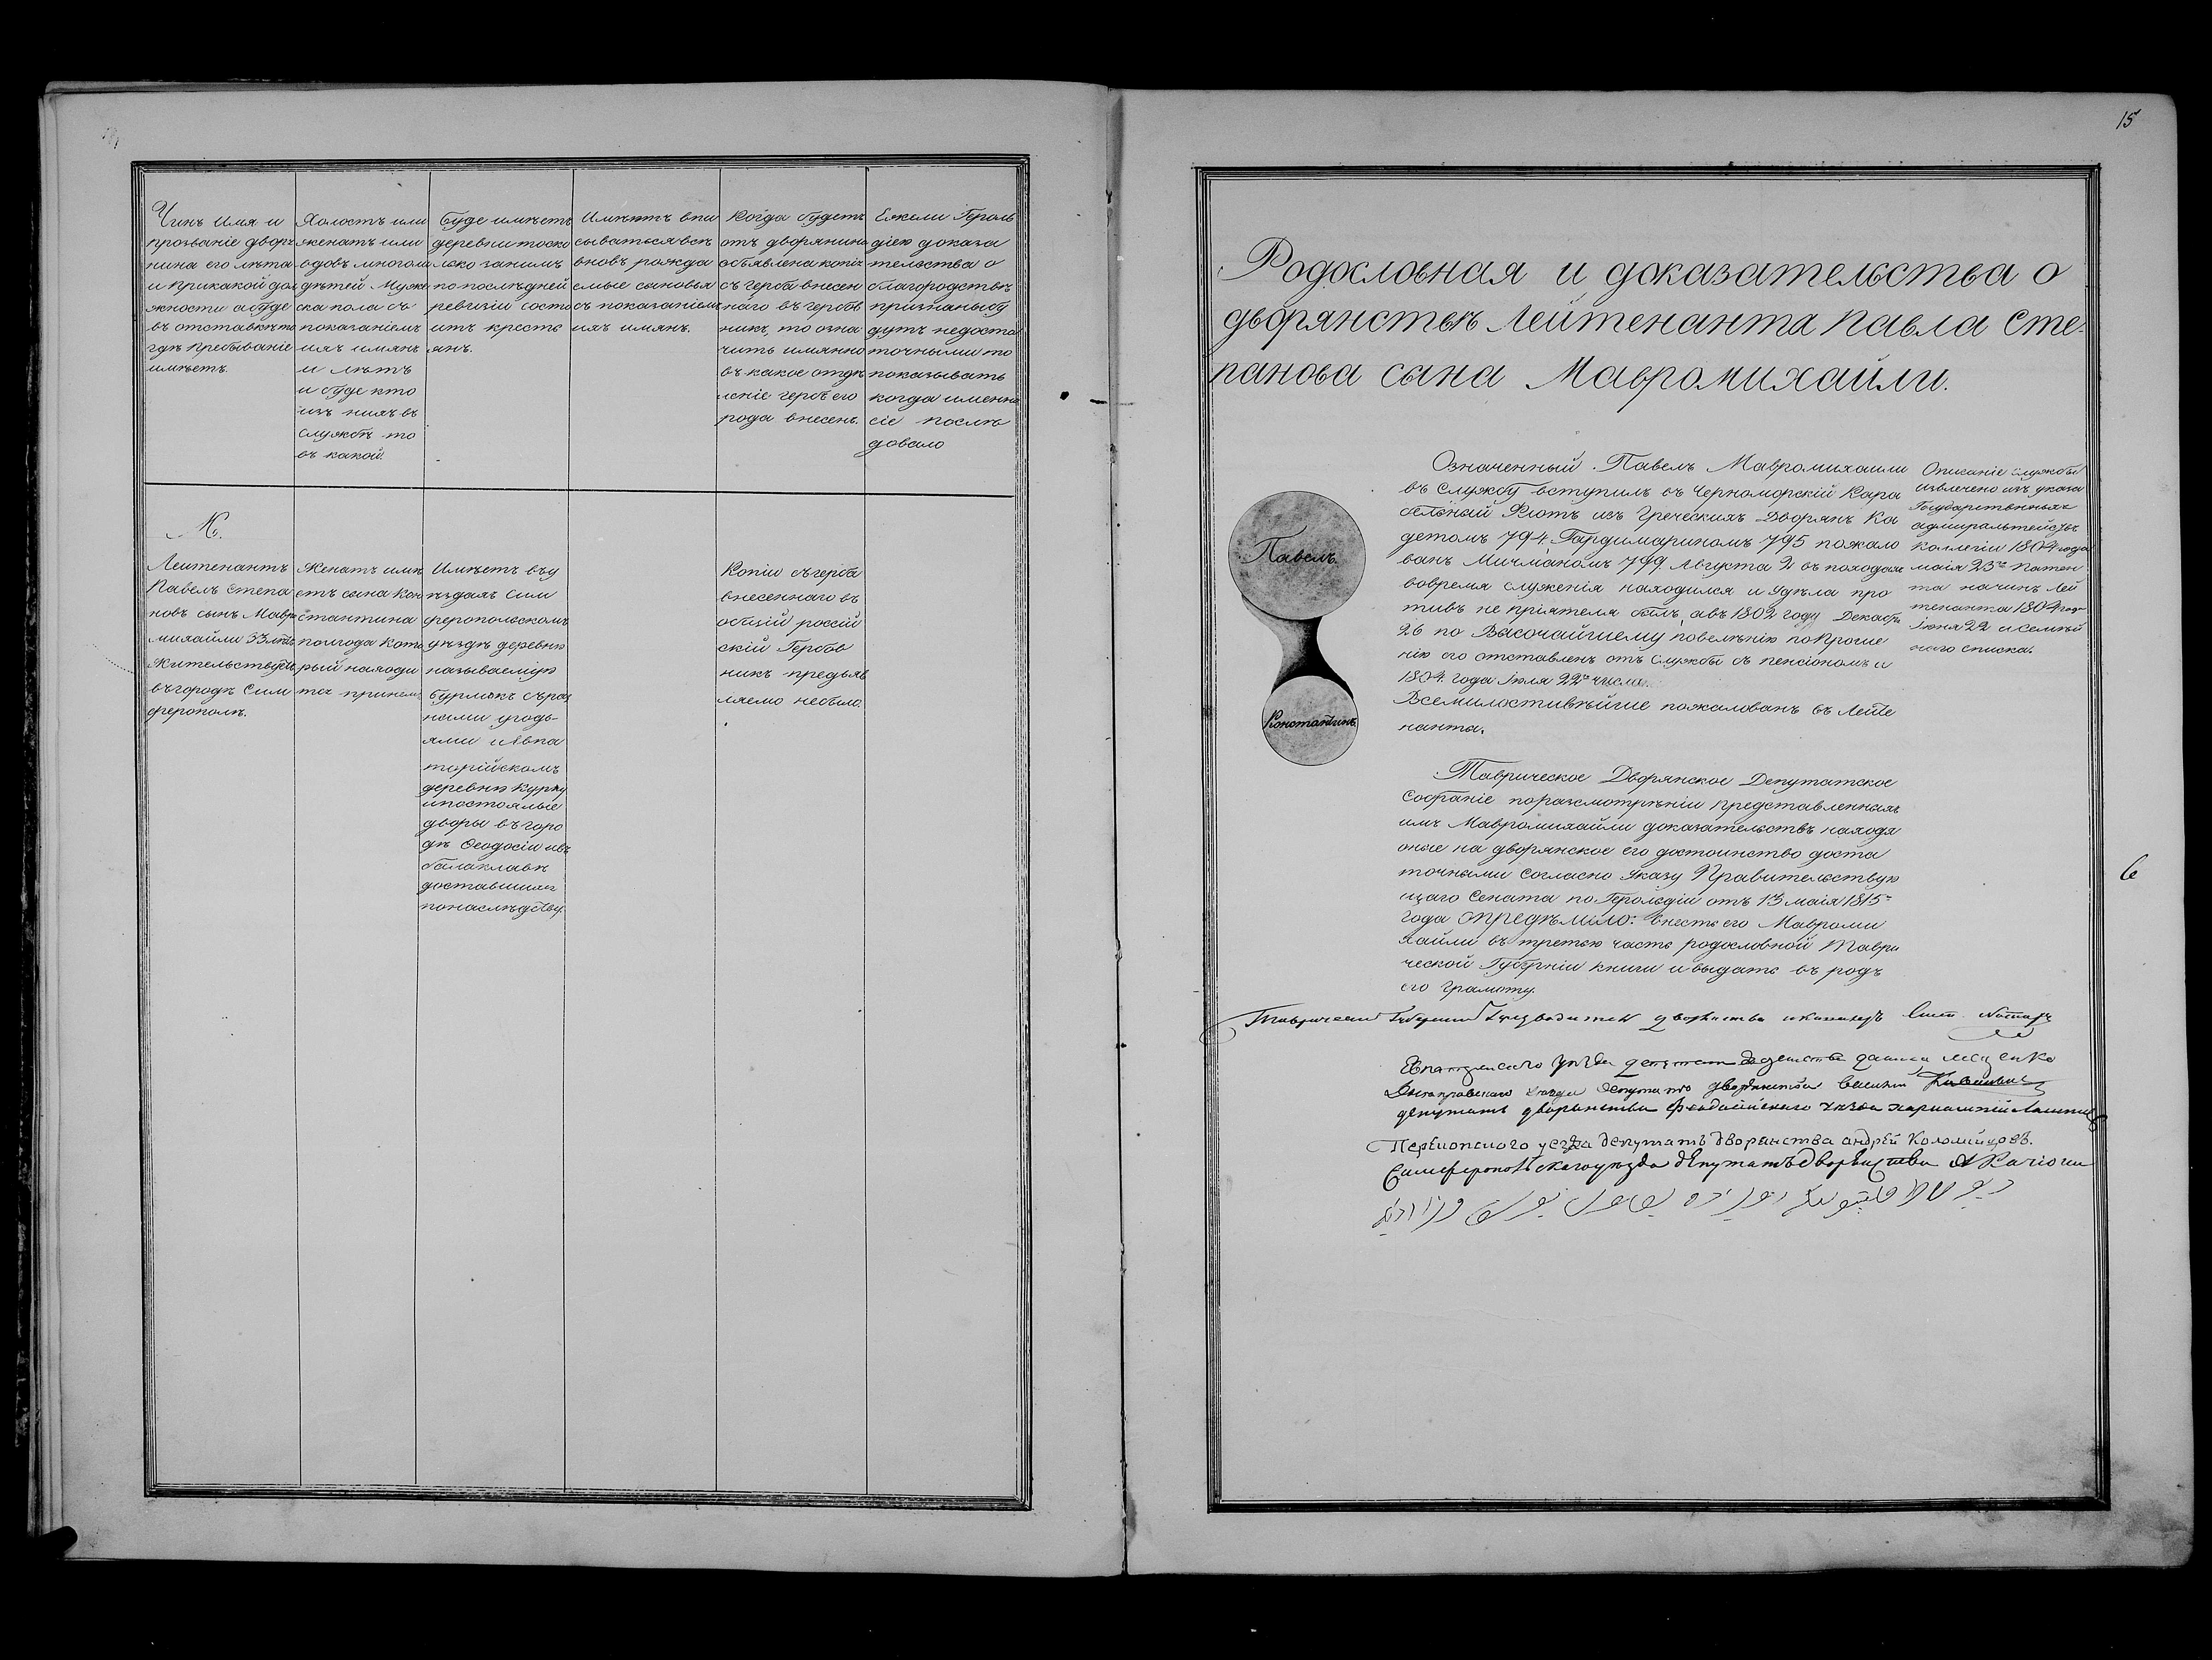 Чинъ Имя и
прозваніе дворя
нина его лѣта
и прикакой дол
жности абуде
въ отставкѣ то
гдѣ пребываніе
имѣетъ.
Холостъ или
женатъ или
вдовъ многоли
дѣтей Муже
ска пола съ
показаніемъ
ихъ имянъ
и лѣтъ
и буде кто
изъ нихъ въ
службѣ то
въ какой.
Буде имѣетъ
деревни тоско
лько занимъ
попослѣдней
ревизіи состо
итъ крестъ
янъ.
Имѣютъ впи
сываться всѣ
вновь рожда
емые сыновья
съ показаніемъ
ихъ имянъ.
Когда будетъ
отъ дворянина
объявлена копія
съ герба внесен
наго въ гербов
никъ, то озна
чить имянно
въ какое отдѣ
леніе гербъ его
рода внесенъ.
Ежели Героль
діею доказа
тельства о
благородствѣ
признаны бу
дутъ недоста
точными то
показывать
когда именно
сіе послѣ
довало
М.
Лейтенантъ
Павелъ Степа
новъ сынъ Мавро
михайли 33 лѣтъ
Жительствуетъ
въ городѣ Сим
ферополѣ.
Женатъ имѣ
етъ сына Кон
стантина
полгода Кото
рый находи
тся принемъ
Имѣетъ въу
ѣздахъ Сим
феропольскомъ
уѣздѣ деревню
называемую
Бурлюкъ съраз
ными угодь-
ями и Евпа
торійскомъ
деревню Курлу
ипостоялые
дворы въ горо
дѣ Ѳеодосіи ивъ
балаклавѣ
доставшіяся
понаслѣдству.
Копіи съгерба
внесеннаго въ
общій россій
скій Гербов
никъ предъяв
ляемо небыло.
15
Родословная и доказательства о
дворянствѣ Лейтенанта Павла Сте-
панова сына Мавромихайли.
Павелъ.
Константинъ
Означенный Павелъ Мавромихаили
въ службу вступилъ въ Черноморскій Кара
бельный Флотъ изъ Греческихъ Дворянъ Ка
детомъ 794, Гардимариномъ 795 пожало
ванъ Мичманомъ 799. Августа 2 въ походахъ
вовремя служенія находился и Удѣла про
тивъ не пріятеля былъ, авъ 1802 году Декабря
26 по Высочайшему повелѣнію попроше
нію его отставленъ отъ Службы съ пенсіономъ и
1804. года Іюля 22го числа.
Всемилостивѣйше пожалованъ въ Лейте
нанты.
Описаніе службы
извлечено изъ указа
Государственныхъ
адмиральтействъ
Коллегіи 1804 года
маія 23го Патен
та на чинъ Лей
тенанта 1804 год
Іюня 22 и Семей
наго списка.
Таврическое Дворянское Депутатское
Собраніе поразсмотрѣніи представленныхъ
имъ Мавромихайли доказательствъ находя
оные на дворянское его достоинство доста
точными согласно Указу Правительствую
щаго Сената по Герольдіи отъ 13 маія 1815=
года опредѣлило: внесть его Мавроми
хайли въ третью часть родословной Таври
ческой Губерніи книги и выдать въ родъ
его грамоту.
6
Евпаторискаго уѣзда депутат
Днепровскаго уѣзда депутатъ дворянства
депутатъ дворянства феодосійскаго уѣзда
Перекопского уезда депутатъ дворянства андрей Коломийцовъ.
Симферопольскаго уѣзда депутатъ дворянства